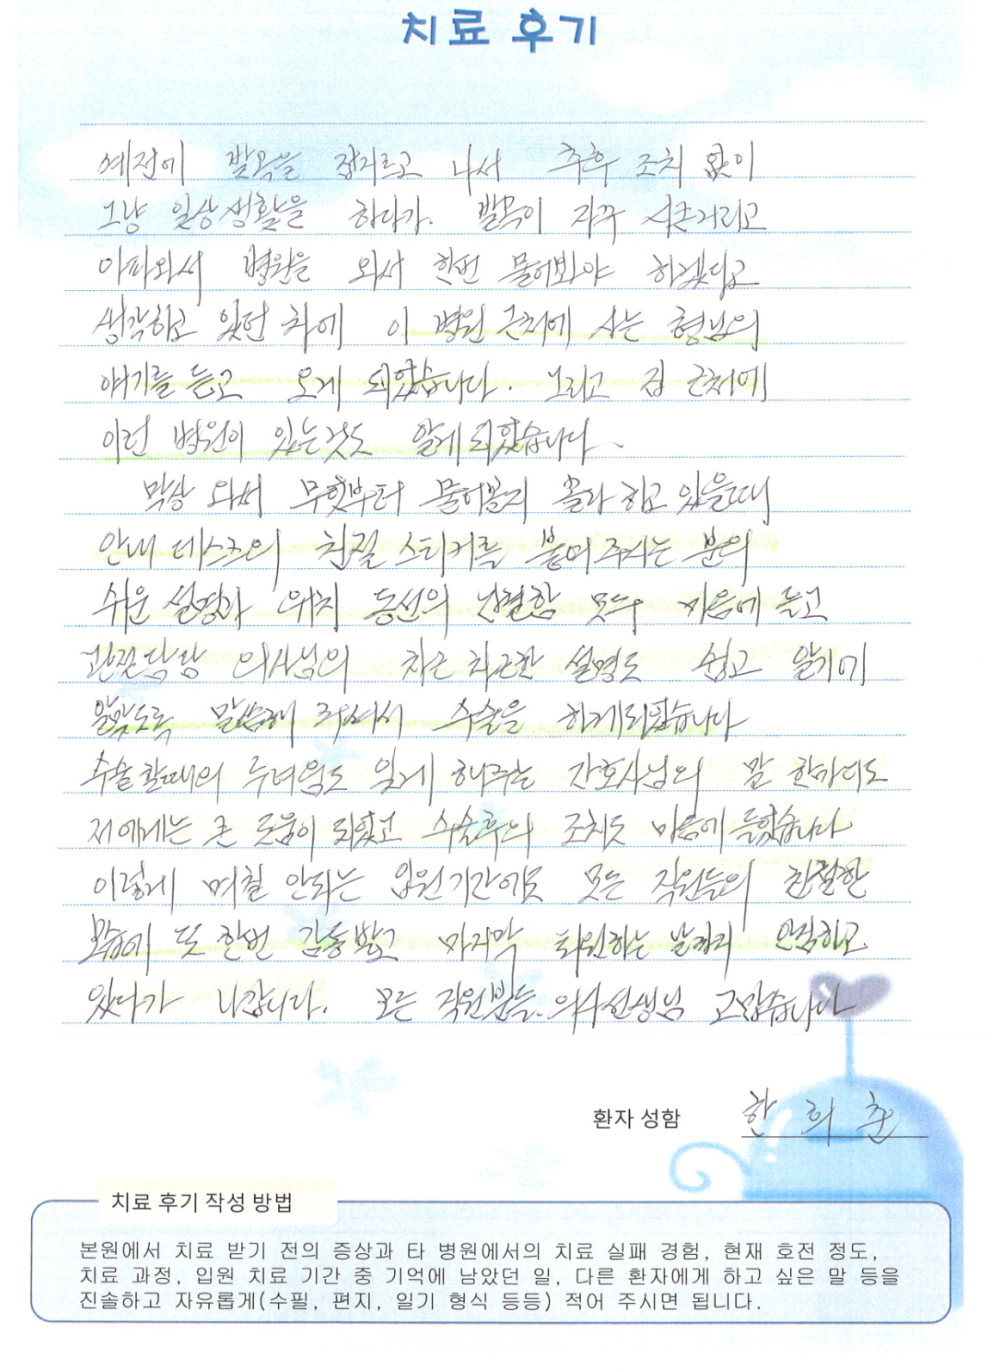 치료 후기
예전에 발목을 접지르고 나서 추후 조치 없이
그냥 일상생활을 하다가. 발목이 자꾸 시큰거리고
아파와서 병원을 와서 한번 물어봐야 하겠다고
생각하고 있던 차에 이 병원 근처에 사는 형님의
얘기를 듣고 오게 되었습니다. 그리고 집 근처에
이런 병원이 있는것도 알게 되었습니다.
막상 와서 무엇부터 물어볼지 몰라 하고 있을때
안내 데스크의 친절 스티커를 붙여 주시는 분의
쉬운 설명과 위치 동선의 간결함 모두 마음에 들고
관절담당 의사님의 차근 차근한 설명도 쉽고 알기에
알맞도록 말씀해 주셔서 수술을 하게되었습니다
수술할때의 두려움도 잊게 해주는 간호사님의 말 한마디도
저에게는 큰 도움이 되었고 수술후의 조치도 마음에 들었습니다
이렇게 며칠 안되는 입원기간에도 모든 직원들의 친절한
모습에 또 한번 감동받고 마지막 퇴원하는 날까지 안심하고
있다가 나갑니다. 모든 직원분들. 의사선생님 고맙습니다
환자 성함 한 희 춘
치료 후기 작성 방법
본원에서 치료 받기 전의 증상과 타 병원에서의 치료 실패 경험, 현재 호전 정도,
치료 과정, 입원 치료 기간 중 기억에 남았던 일, 다른 환자에게 하고 싶은 말 등을
진솔하고 자유롭게(수필, 편지, 일기 형식 등등) 적어 주시면 됩니다.